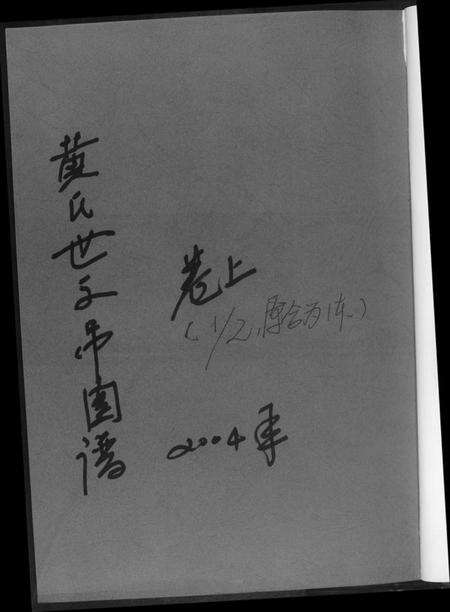 黄氏世系吊图谱
卷上
(1/2,原合为1本.)
2004年